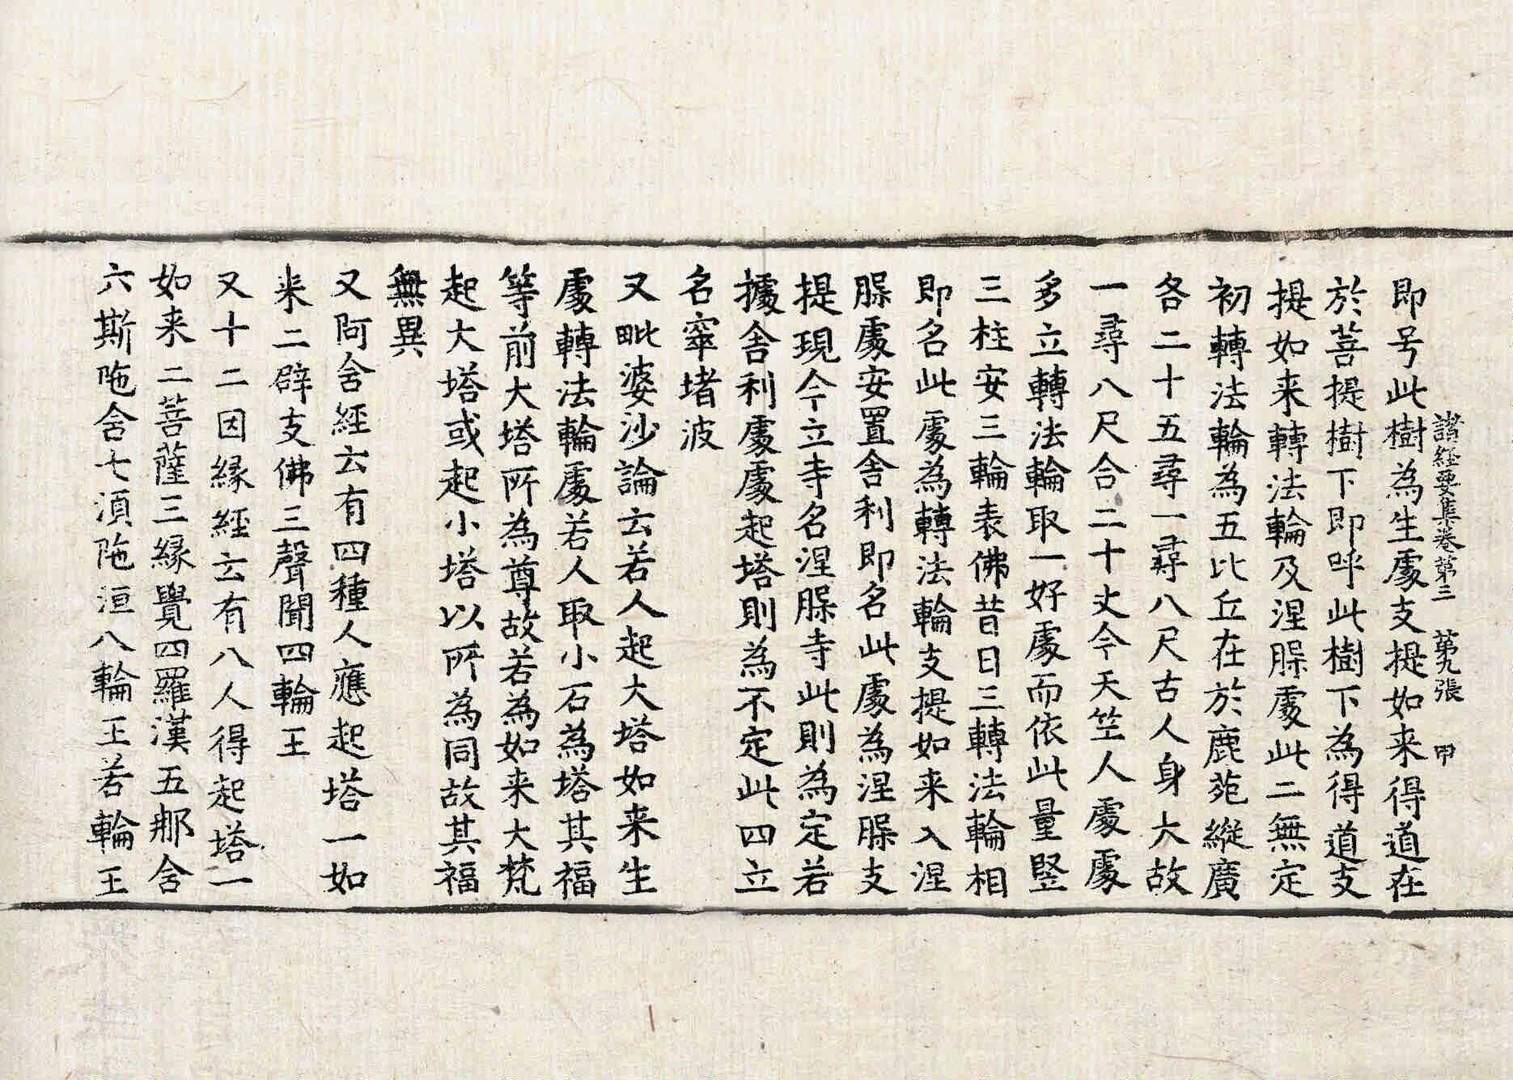 諸經要集卷第三　第九張　甲
即号此樹為生處支提如来得道在
於菩提樹下即呼此樹下為得道支
提如来轉法輪及涅脲處此二無定
初轉法輪為五比丘在於鹿苑縱廣
各二十五尋一尋八尺古人身大故
一尋八尺合二十丈今天竺人處處
多立轉法輪取一好處而依此量竪
三柱安三輪表佛昔日三轉法輪相
即名此處為轉法輪支提如来入涅
脲處安置舍利即名此處為涅脲支
提現今立寺名涅脲寺此則為定若
據舍利處處起塔則為不定此四立
名窣堵波
又毗婆沙論云若人起大塔如来生
處轉法輪處若人取小石為塔其福
等前大塔所為尊故若為如来大梵
起大塔或起小塔以所為同故其福
無異
又阿含經云有四種人應起塔一如
来二辟支佛三聲聞四輪王
又十二因縁經云有八人得起塔一
如来二菩薩三縁覺四羅漢五那含
六斯陁含七湏陁洹八輪王若輪王